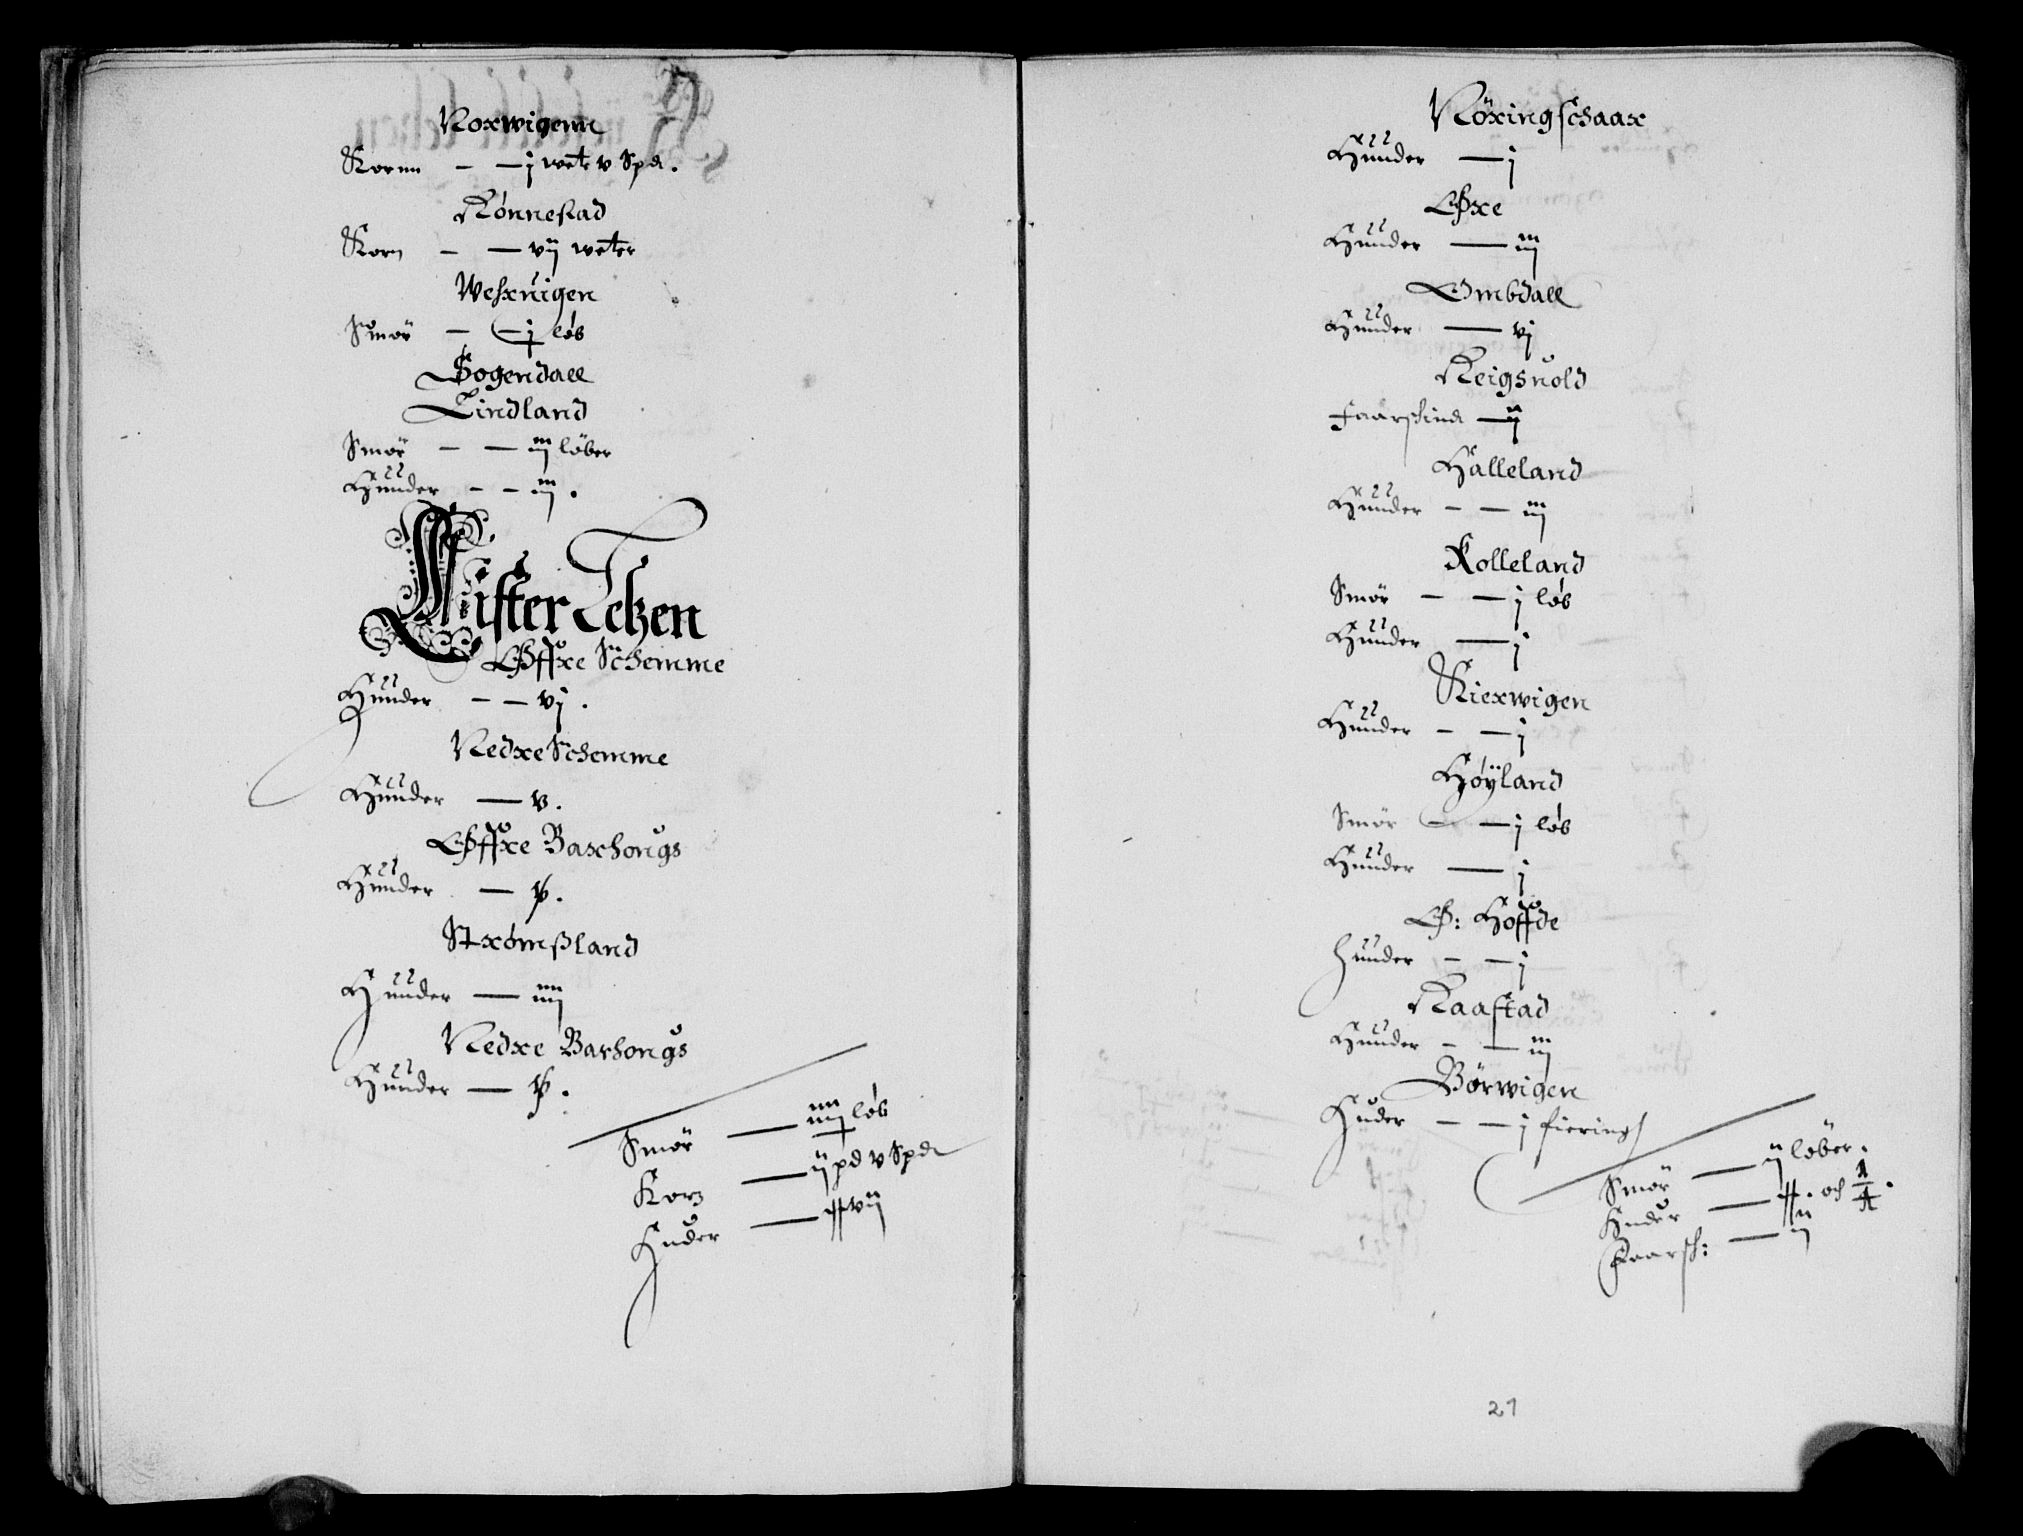 Norwigenn
Kornn - - j weter v Spd.
Rønnestad
Korn - - vij weter
Westuigen
Smør - - j løb
Sogendall
Lindland
Smør - - iij løber
Huuder - - iij.
Lister Lehen
Øffre Schemme
Huuder - - vj.
Nedre Schemme
Huuder - v.
Øffre Barhougs
Huuder -
Strømßland
Huuder - iiij
Nedre Barhougs
Huuder -
Smør - iiij løb
Korn - ij pd v Spd
Huder - vij
Nøringschaar
Huuder - j
Øxe
Huuder - iij
Ombdall
Huuder - vj
Reigsuold
Faarskind - ij
Halleland
Huuder - - iij
Rolleland
Smør - - j løb
Huuder - j
Kierwigen
Huuder - - j
Høyland
Smør - - j løb
Huuder - j
Ø: Høffde
Huuder - - j
Raastad
Huuder - - iij
Børwigen
Huder - - j fiering
Smør - ij løber.
Huder - och 1/4.
Faarsk: - ij
21